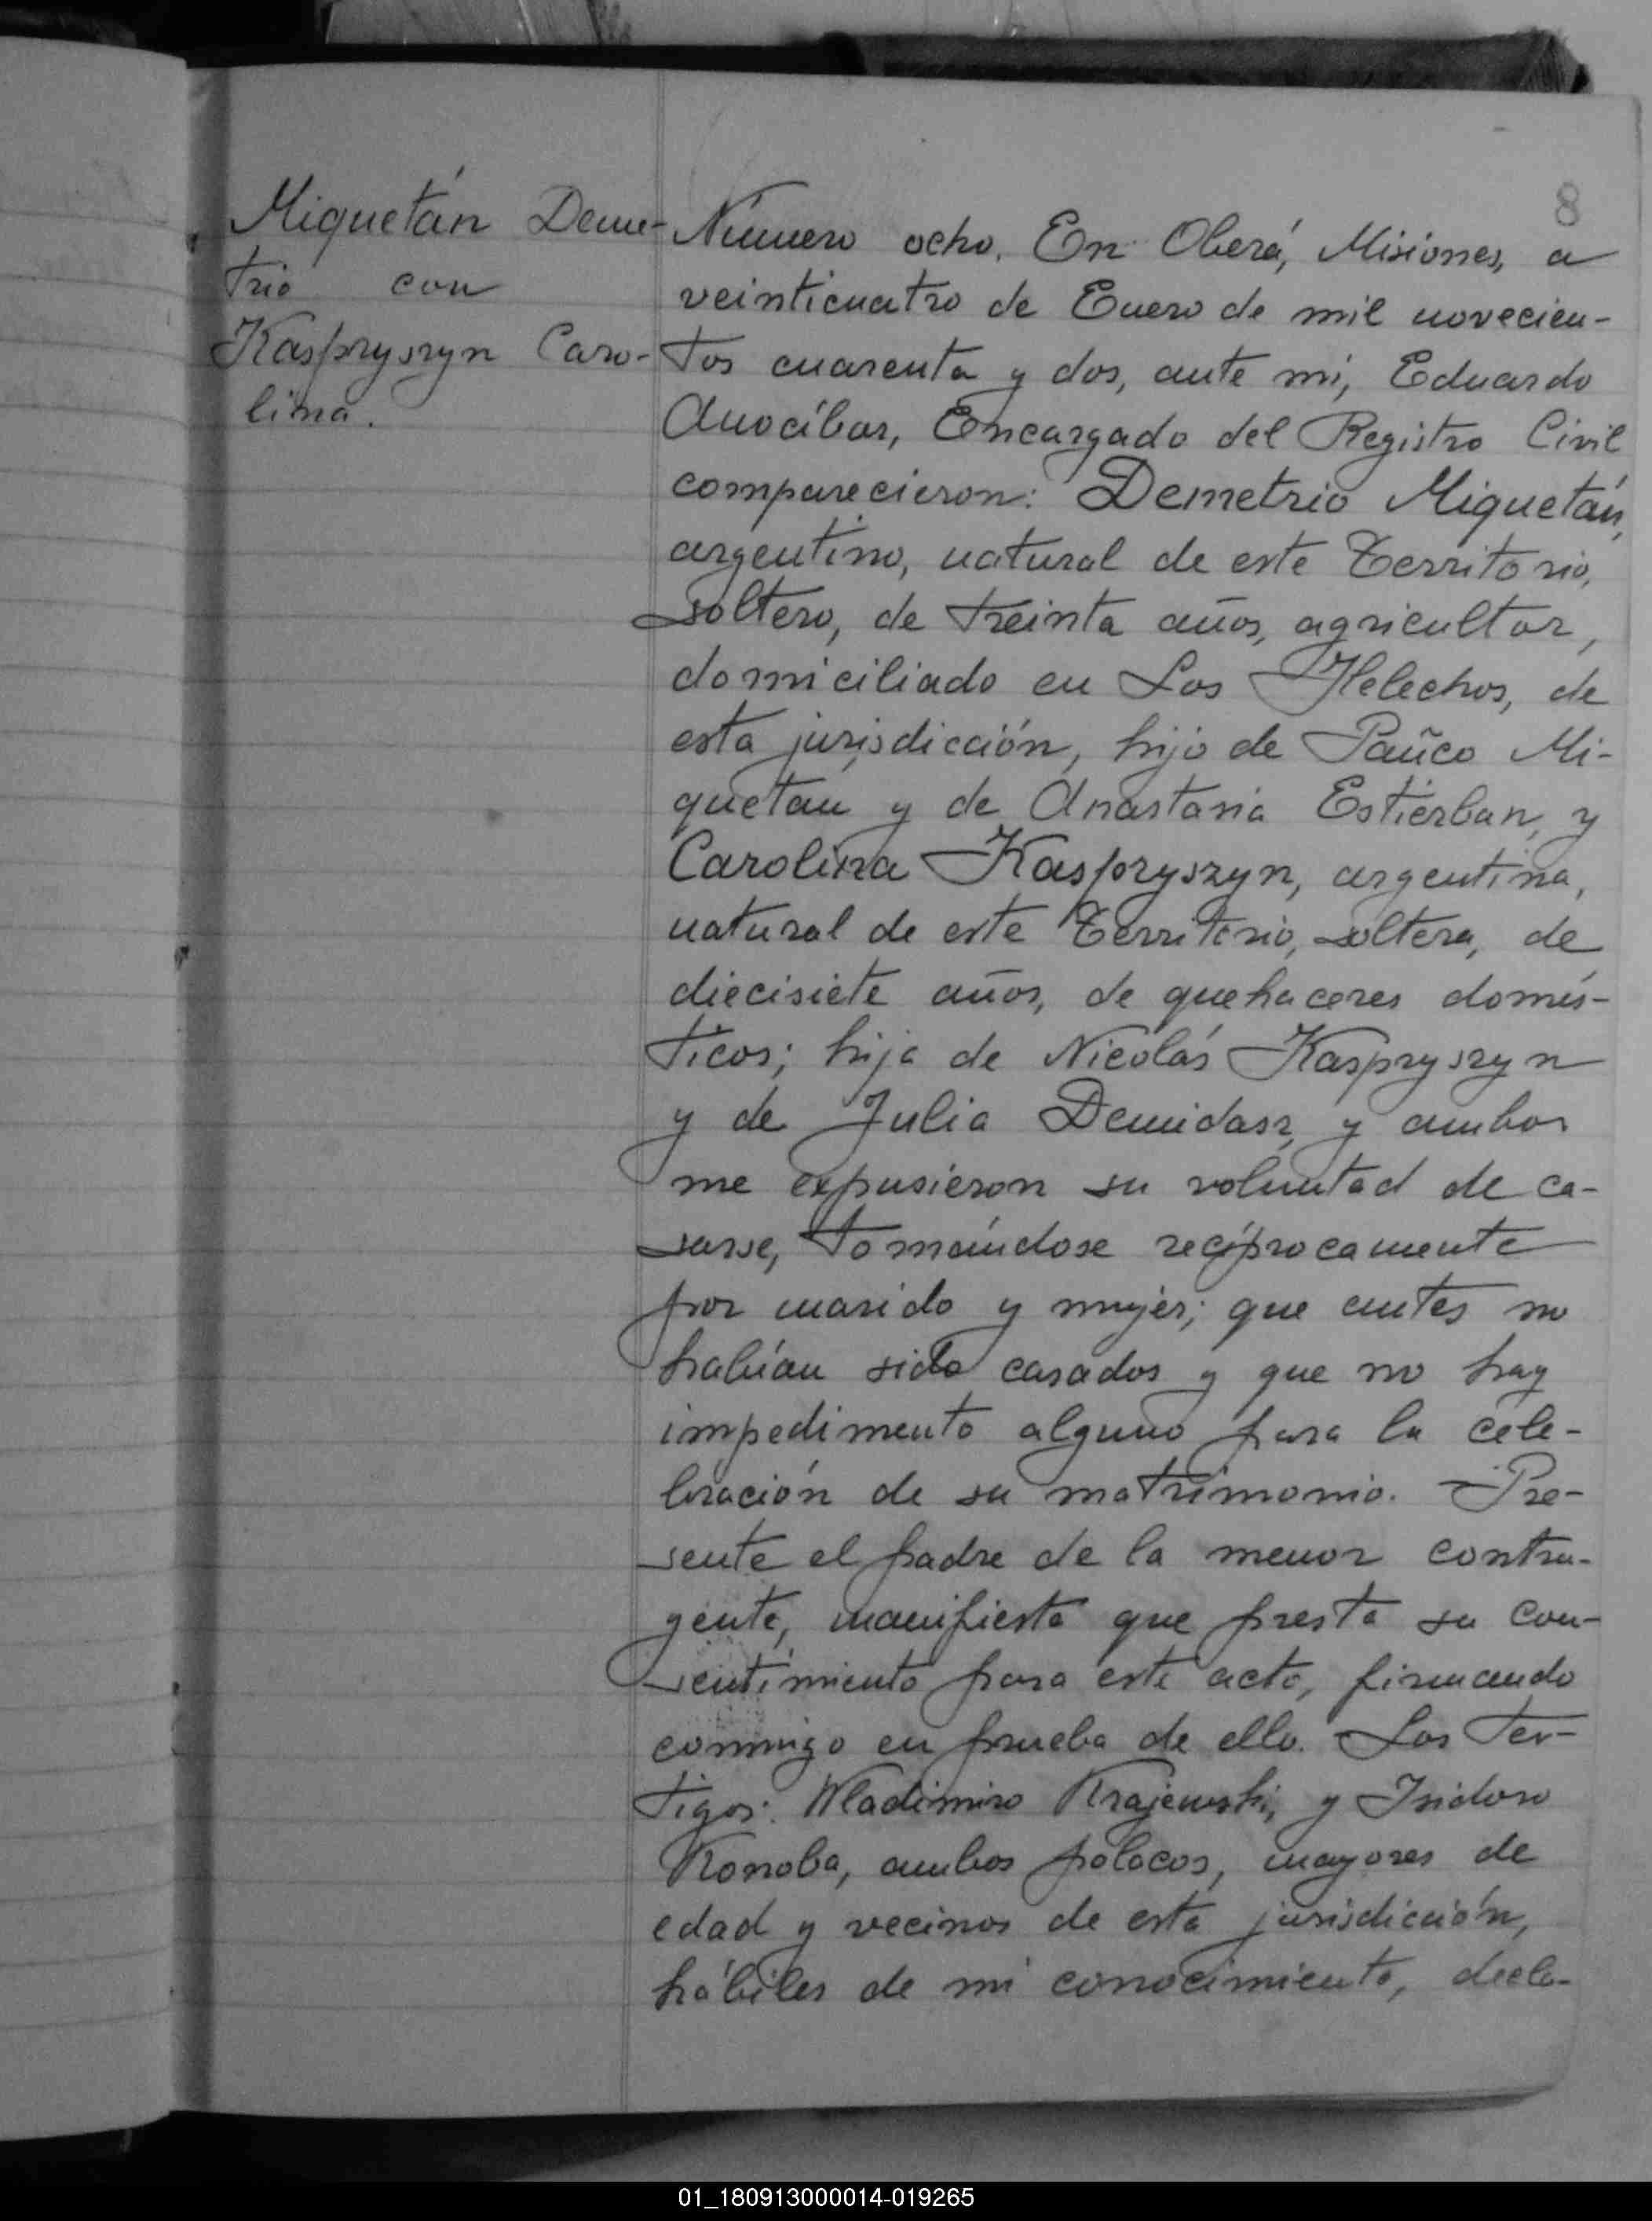 8
Miquetán Deme-
trio con
Kaspryszyn Caro-
lina.
Número ocho. En Oberá, Misiones, a
veinticuatro de Enero de mil novecien-
tos cuarenta y dos, ante mí, Eduardo
Anocíbar, Encargado del Registro Civil
comparecieron: Demetrio Miquetán,
argentino, natural de este Territorio,
soltero, de treinta años, agricultor,
domiciliado en Los Helechos, de
esta jurisdicción, hijo de Pañco Mi-
quetan y de Anastasia Estierban, y
Carolina Kaspryszyn, argentina,
natural de este Territorio, soltera, de
diecisiete años, de quehaceres domés-
ticos; hija de Nicolás Kaspryszyn
y de Julia Demidasz, y ambos
me expusieron su voluntad de ca-
sarse, tomándose recíprocamente
por marido y mujer; que antes no
habían sido casados y que no hay
impedimento alguno para la cele-
bración de su matrimonio. Pre-
sente el padre de la menor contra-
yente, manifiesta que presta su con-
sentimiento para este acto, firmando
conmigo en prueba de ello. Los tes-
tigos: Wladimiro Krajewski, y Isidoro
Konoba, ambos polacos, mayores de
edad y vecinos de esta jurisdicción,
hábiles de mi conocimiento, decla-
01_180913000014-019265